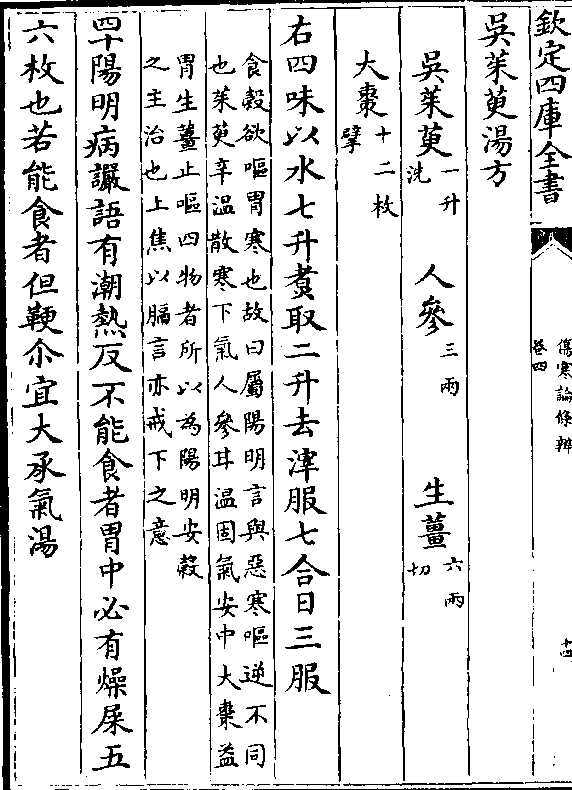 欽定四庫全書
傷寒論條辨
卷四
十四
吳茱萸湯方
吳茱萸一升洗 人參三兩 生薑六兩切
大棗十二枚擘
右四味以水七升煑取二升去滓服七合日三服
食穀欲嘔胃寒也故曰屬陽明言與惡寒嘔逆不同
也茱萸辛溫散寒下氣人參甘溫固氣安中大棗益
胃生薑止嘔四物者所以為陽明安穀
之主治也上焦以膈言亦戒下之意
四十陽明病讝語有潮熱反不能食者胃中必有燥屎五
六枚也若能食者但鞕尒宜大承氣湯